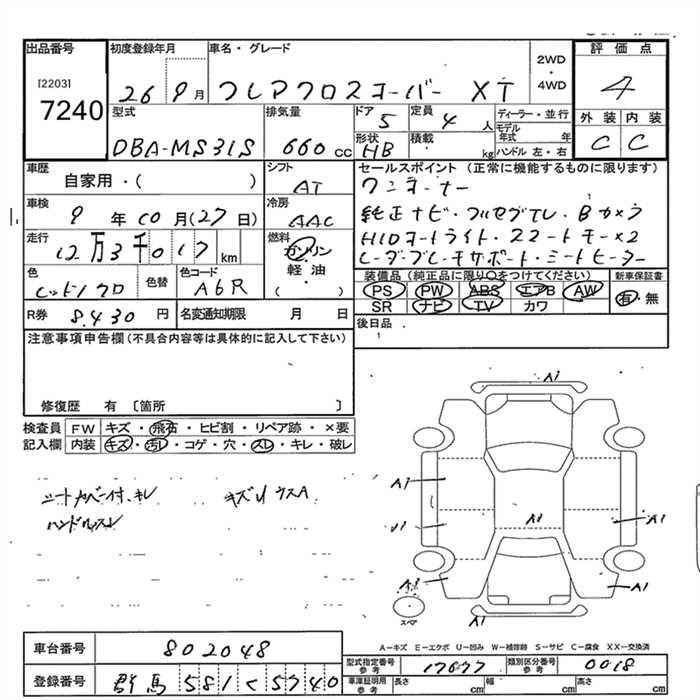 出品番号
[2203]
7240
初度登録年月
26 9月
車名・グレード
フレアクロスオーバー XT
2WD・4WD
評価点
4
型式
DBA-MS31S
排気量
660 cc
ドア
5
定員
4 人
形状
HB
積載
kg
ディーラー・並行
モデル年式 年
ハンドル 左・右
外装 内装
C C
車歴
自家用・( )
シフト
AT
車検
9年10月(27日)
冷房
AAC
走行
12万3千017km
燃料
ガソリン
軽油
( )
色
色替
色コード
A6R
R券 8.430円
名変通知期限 月 日
セールスポイント(正常に機能するものに限ります)
ワンオーナー
純正ナビ・フルセグTV・Bカメラ
HIDオートライト・スマートキー×2
レーダブレーキサポート・シートヒーター
装備品(純正品に限り○をつけてください)
新車保証書
PS PW ABS エアB AW
有・無
SR ナビ TV カワ
後日品
注意事項申告欄(不具合内容等は具体的に記入して下さい)
修復歴 有 〔箇所 〕
検査員記入欄
FW キズ・飛石・ヒビ割・リペア跡・×要
内装 キズ・汚レ・コゲ・穴・スレ・キレ・破レ
シートカバー付、キレ
キズ
ハンドルスレ
A1
A1
A1
A1
A1
A1
A1
A1
スペア
A−キズ E−エクボ U−凹み W−補修跡 S−サビ C−腐食 XX−交換済
車台番号 802048
登録番号 群馬 581 く 5740
型式指定番号 参考 17677
類別区分番号 参考 0018
車庫証明用 参考 長さ cm 幅 cm 高さ cm